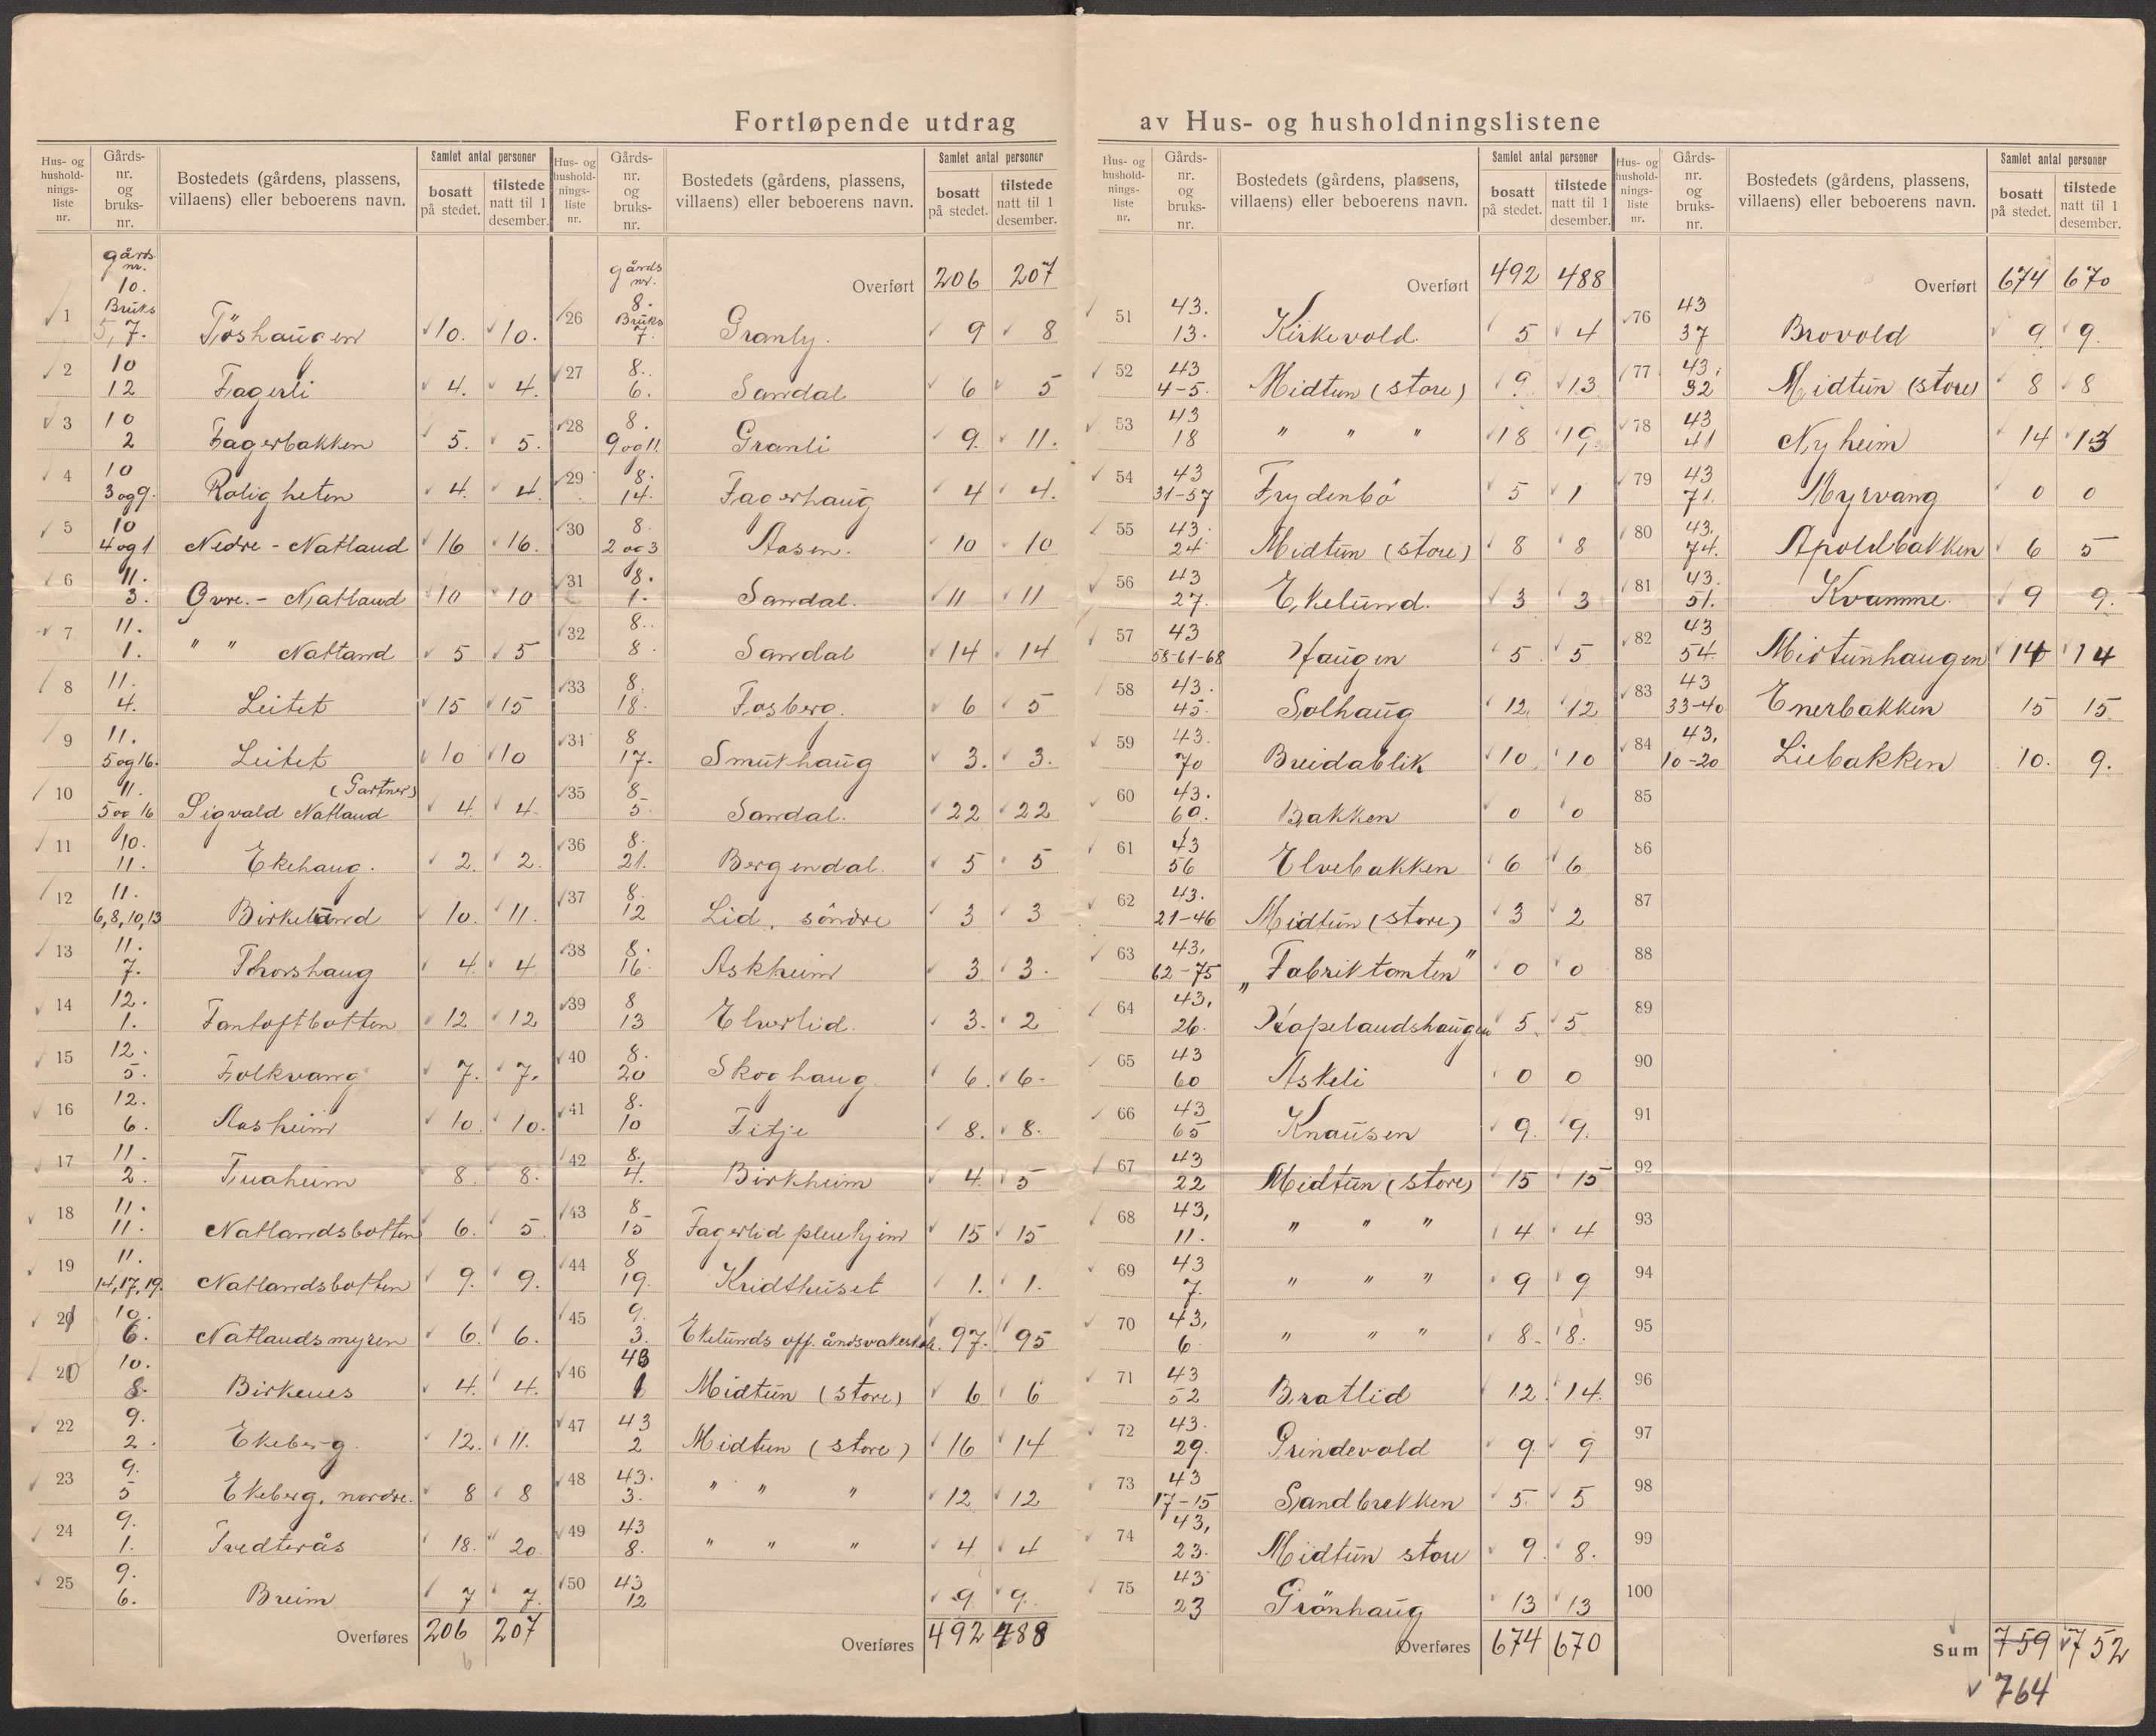 Fortløpende utdrag av Hus- og husholdningslistene
Hus- og husholdnings-liste nr. Gårds-nr. og bruks-nr. Bostedets (gårdens, plassens, villaens) eller beboerens navn. Samlet antal personer bosatt på stedet. tilstede natt til 1 desember.
gårds nr. 10.
1 Bruks 5, 7. Töshaugen 10. 10.
2 10 12 Fagerli 4. 4.
3 10 2 Fagerbakken 5. 5.
4 10 3 og 9. Roligheten 4. 4.
5 10 4 og 1 Nedre - Natland 16 16.
6 11. 3. Övre. - Natland 10 10
7 11. 1. " " Natland 5 5
8 11. 4. Leitet 15 15
9 11. 5 og 16. Leitet 10 10
10 11. 5 og 16 Sigvald Natland (Gartner) 4 4
11 10. 11. Ekehaug. 2 2.
12 11. 6, 8, 10, 13 Birkelund 10. 11.
13 11. 7. Thorshaug 4. 4
14 12. 1. Fantoftbotten 12 12
15 12. 5. Folkvang 7. 7.
16 12. 6. Aasheim 10. 10.
17 11. 2. 8. 8.
18 11. 11. Natlandsbotten 6. 5
19 11. 14, 17, 19. Natlandsbotten 9. 9.
21 10. 6. Natlandsmyren 6. 6.
20 10. 8. Birkenes 4. 4.
22 9. 2. Ekeberg. 12. 11.
23 9. 5 Ekeberg, nordre. 8 8
24 9. 1. Tvedterås 18. 20
25 9. 6. Breim 7 7.
Overføres 206 207
Hus- og husholdnings-liste nr. Gårds-nr. og bruks-nr. Bostedets (gårdens, plassens, villaens) eller beboerens navn. Samlet antal personer bosatt på stedet. tilstede natt til 1 desember.
gårds nr. Overført 206 207
26 8. Bruks 7. Granly. 9 8
27 8. 6. Sandal 6 5
28 8. 9 og 11. Granli 9. 11.
29 8. 14. Fagerhaug 4 4.
30 8. 2 og 3 Aasen. 10 10
31 8. 1. Sandal. 11 11
32 8. 8. Sandal 14 14
33 8. 18. Fosberg. 6 5
34 8 17. Smukhaug 3. 3.
35 8 5 Sandal. 22 22
36 8. 21. Bergendal. 5 5
37 8. 12 Lid, söndre 3 3
38 8. 16. Askheim 3 3.
39 8 13 Elverlid. 3. 2
40 8. 20 Skoghaug. 6. 6.
41 8. 10 Fitje 8. 8.
42 8. 4. Birkheim 4. 5
43 8 15 Fagerlid pleiehjem 15 15
44 8 19. Kridthuset 1. 1.
45 9. 3. Ekelunds off. åndsvakeskole. 97. 95
46 43 1 Midtun (store) 6 6
47 43 2 Midtun (store) 16 14
48 43. 3. " " " 12 12
49 43 8. " " " 4 4
50 43 12 9 9.
Overføres 492 488
Hus- og husholdnings-liste nr. Gårds-nr. og bruks-nr. Bostedets (gårdens, plassens, villaens) eller beboerens navn. Samlet antal personer bosatt på stedet. tilstede natt til 1 desember.
Overført 492 488
51 43. 13. Kirkevold. 5 4
52 43 4-5. Midtun (store) 9. 13
53 43 18 " " " 18 19.
54 43 31-57 Frydenbö 5 1
55 43. 24 Midtun (store) 8 8
56 43 27. Ekelund. 3 3
57 43 58-61-68 Haugen 5 5
58 43. 45. Solhaug 12. 12
59 43. 70 Breidablik 10 10
60 43. 69. Bakken 0 0
61 43 56 Elvebakken 6 6
62 43. 21-46 Midtun (store) 3 2
63 43, 62-75 „Fabriktomten" 0 0
64 43, 26. Hopelandshaugen 5 5
65 43 60 Askeli 0 0
66 43 65 Knausen 9. 9.
67 43 22 Midtun (store) 15 15
68 43, 11. " " " 4 4
69 43 7. " " " 9 9
70 43, 6 " " " 8 8.
71 43 52 Bratlid 12. 14.
72 43. 29. Grindevold 9. 9
73 43 17-15 Sandbrekken 5 5
74 43, 23. Midtun store 9. 8.
75 43 23 Grönhaug 13 13
Overføres 674 670
Hus- og husholdnings-liste nr. Gårds-nr. og bruks-nr. Bostedets (gårdens, plassens, villaens) eller beboerens navn. Samlet antal personer bosatt på stedet. tilstede natt til 1 desember.
Overført 674 670
76 43 37 Brovold 9 9.
77 43, 32 Midtun (store) 8 8
78 43, 41 Nyheim 14 13
79 43 71. Myrvang 0 0
80 43, 74. Apoldbakken 6 5
81 43. 51. Kvamme. 9 9.
82 43 54. Midtunhaugen 14 14
83 43 33-40 Enerbakken 15 15
84 43, 10-20 Liebakken 10. 9.
85
86
87
88
89
90
91
92
93
94
95
96
97
98
99
100
Sum 759 752
764